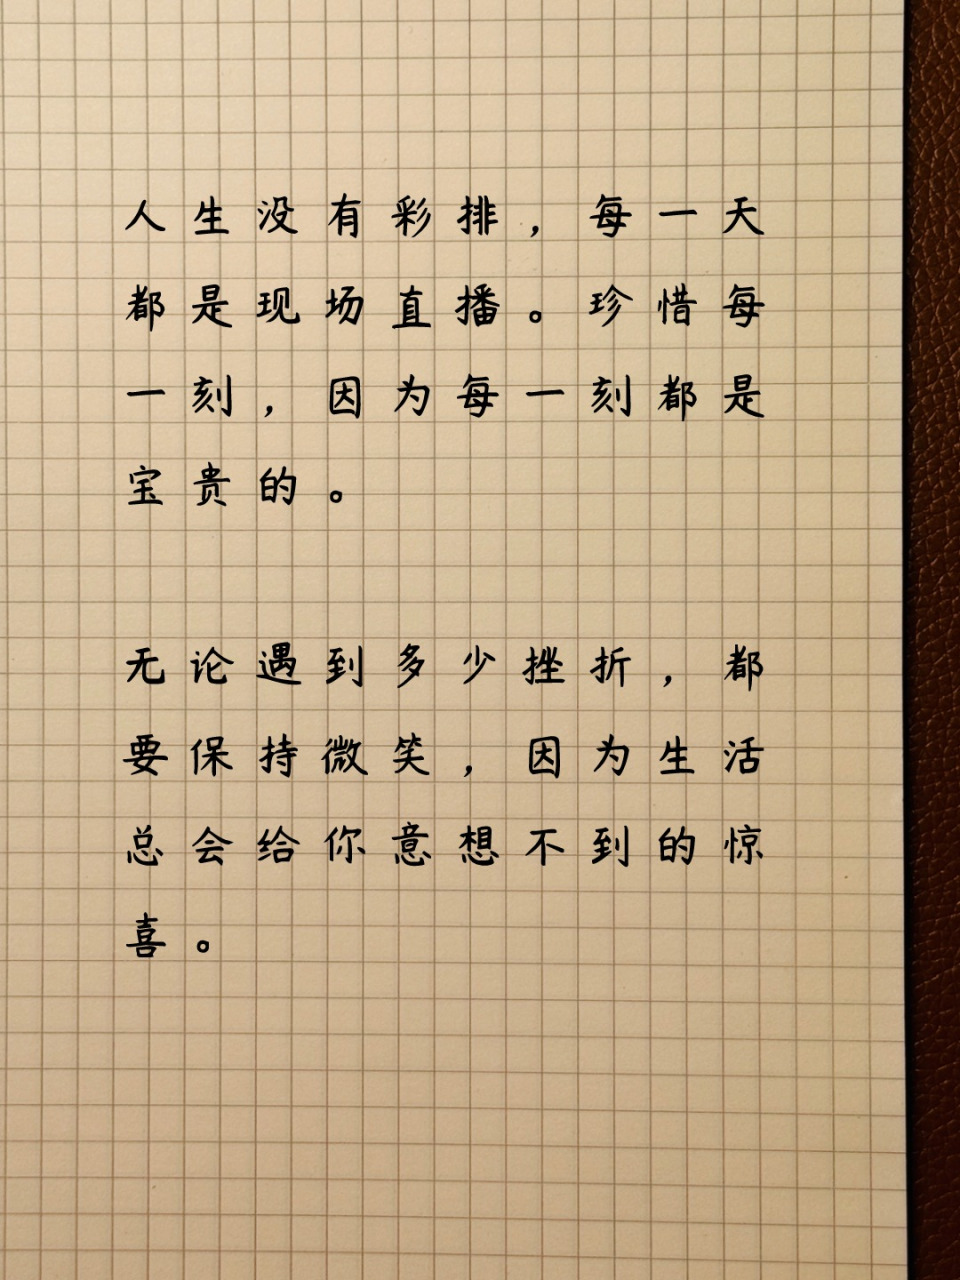 人生没有彩排，每一天
都是现场直播。珍惜每
一刻，因为每一刻都是
宝贵的。
无论遇到多少挫折，都
要保持微笑，因为生活
总会给你意想不到的惊
喜。